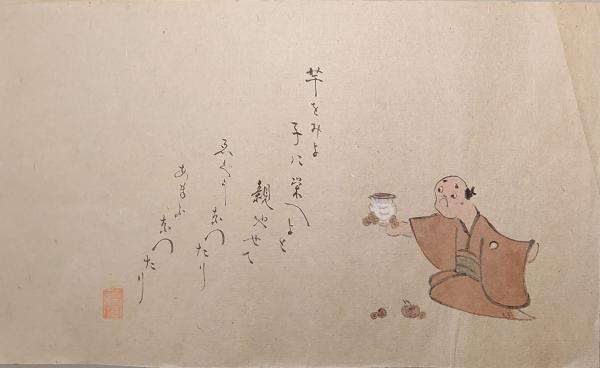 芋をみよ
子に栄へよと
親やせて
ゑぐうなつたり
あまふなつたり